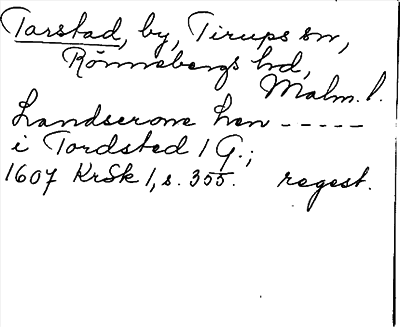 Tarstad, by, Tirups sn,
Rönnebergs hd,
Malm. l.
Landserone len -----
i Tordsted 1 G.;
1607 KrSk 1, s. 355. regest.